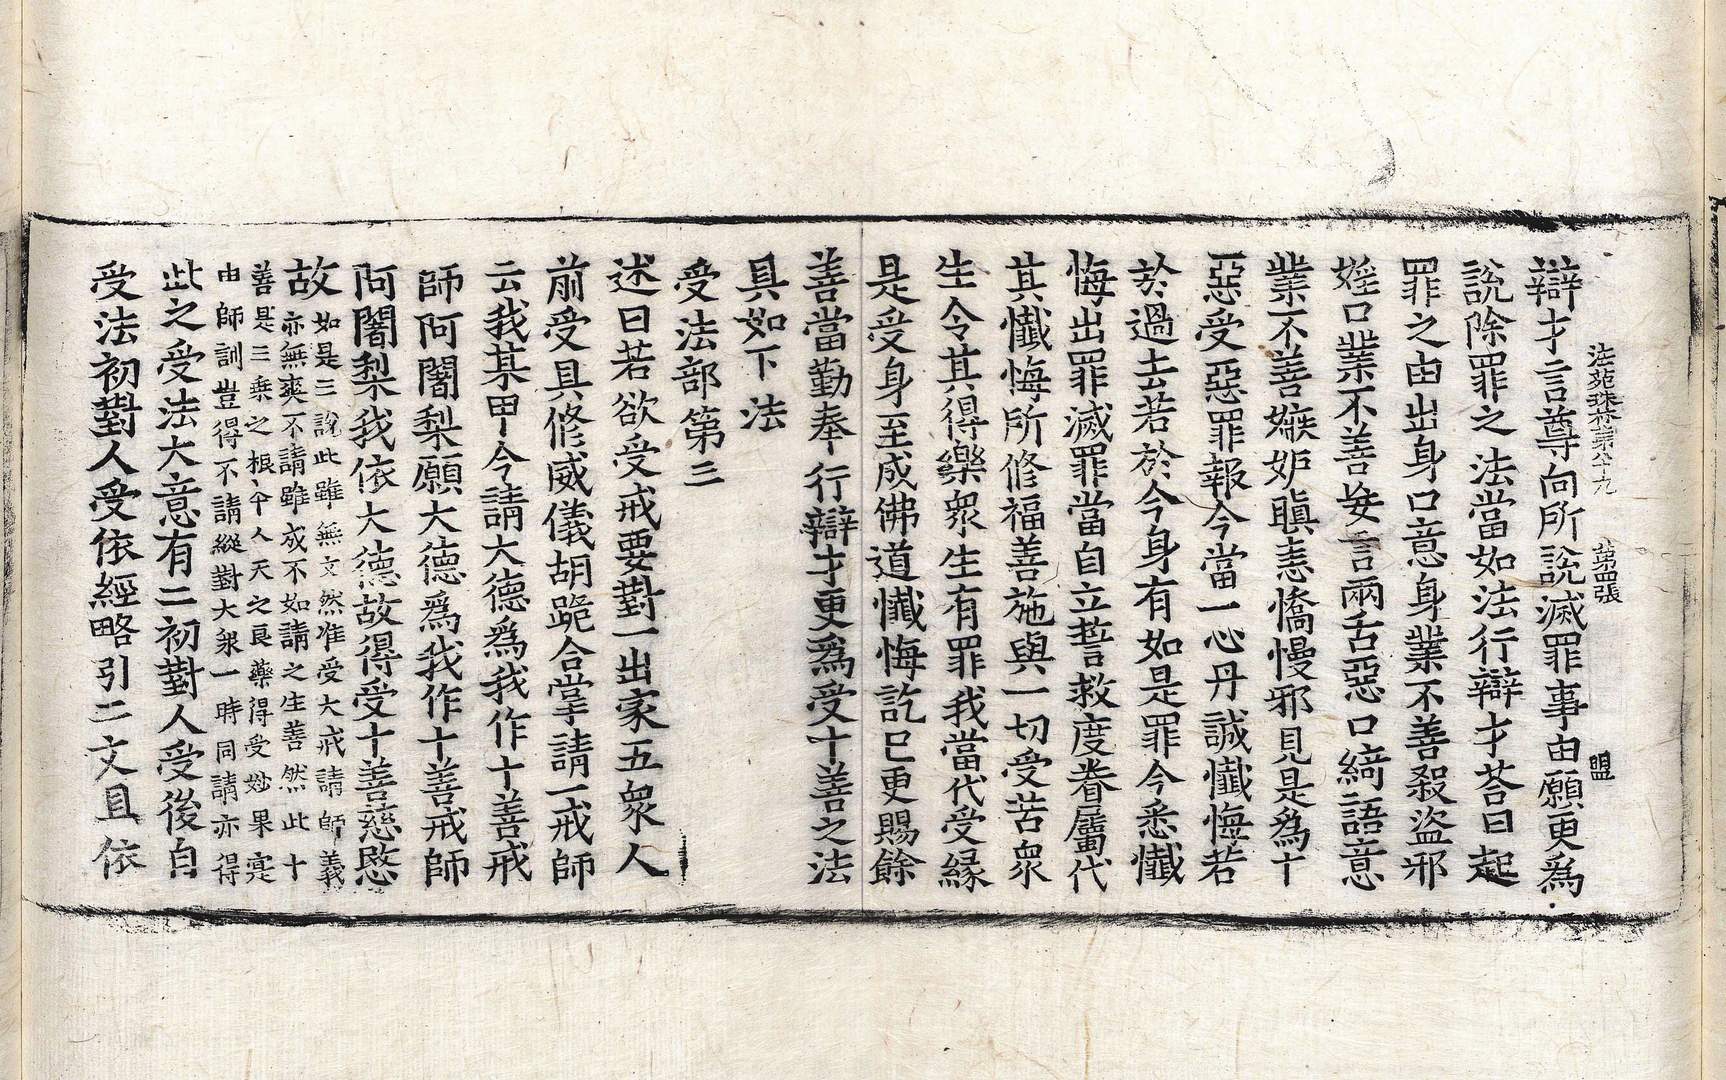 法苑珠林第八十九 第四張 盟
辯才言尊向所說滅罪事由願更為
說除罪之法當如法行辯才荅曰起
罪之由出身口意身業不善殺盜邪
婬口業不善妄言兩舌惡口綺語意
業不善嫉妒瞋恚憍慢邪見是為十
惡受惡罪報今當一心丹誠懺悔若
於過去若於今身有如是罪今悉懺
悔出罪滅罪當自立誓救度眷屬代
其懺悔所修福善施與一切受苦衆
生令其得樂衆生有罪我當代受緣
是受身至成佛道懺悔訖已更賜餘
善當勤奉行辯才更為受十善之法
具如下法
受法部第三
述曰若欲受戒要對一出家五衆人
前受具修威儀胡跪合掌請一戒師
云我某甲今請大德為我作十善戒
師阿闍梨願大德為我作十善戒師
阿闍梨我依大德故得受十善慈愍
故如是三說此雖無文然准受大戒請師義
亦無爽不請雖成不如請之生善然此十
善是三乘之根本人天之良藥得受妙果寔
由師訓豈得不請縱對大衆一時同請亦得
此之受法大意有二初對人受後自
受法初對人受依經略引二文且依